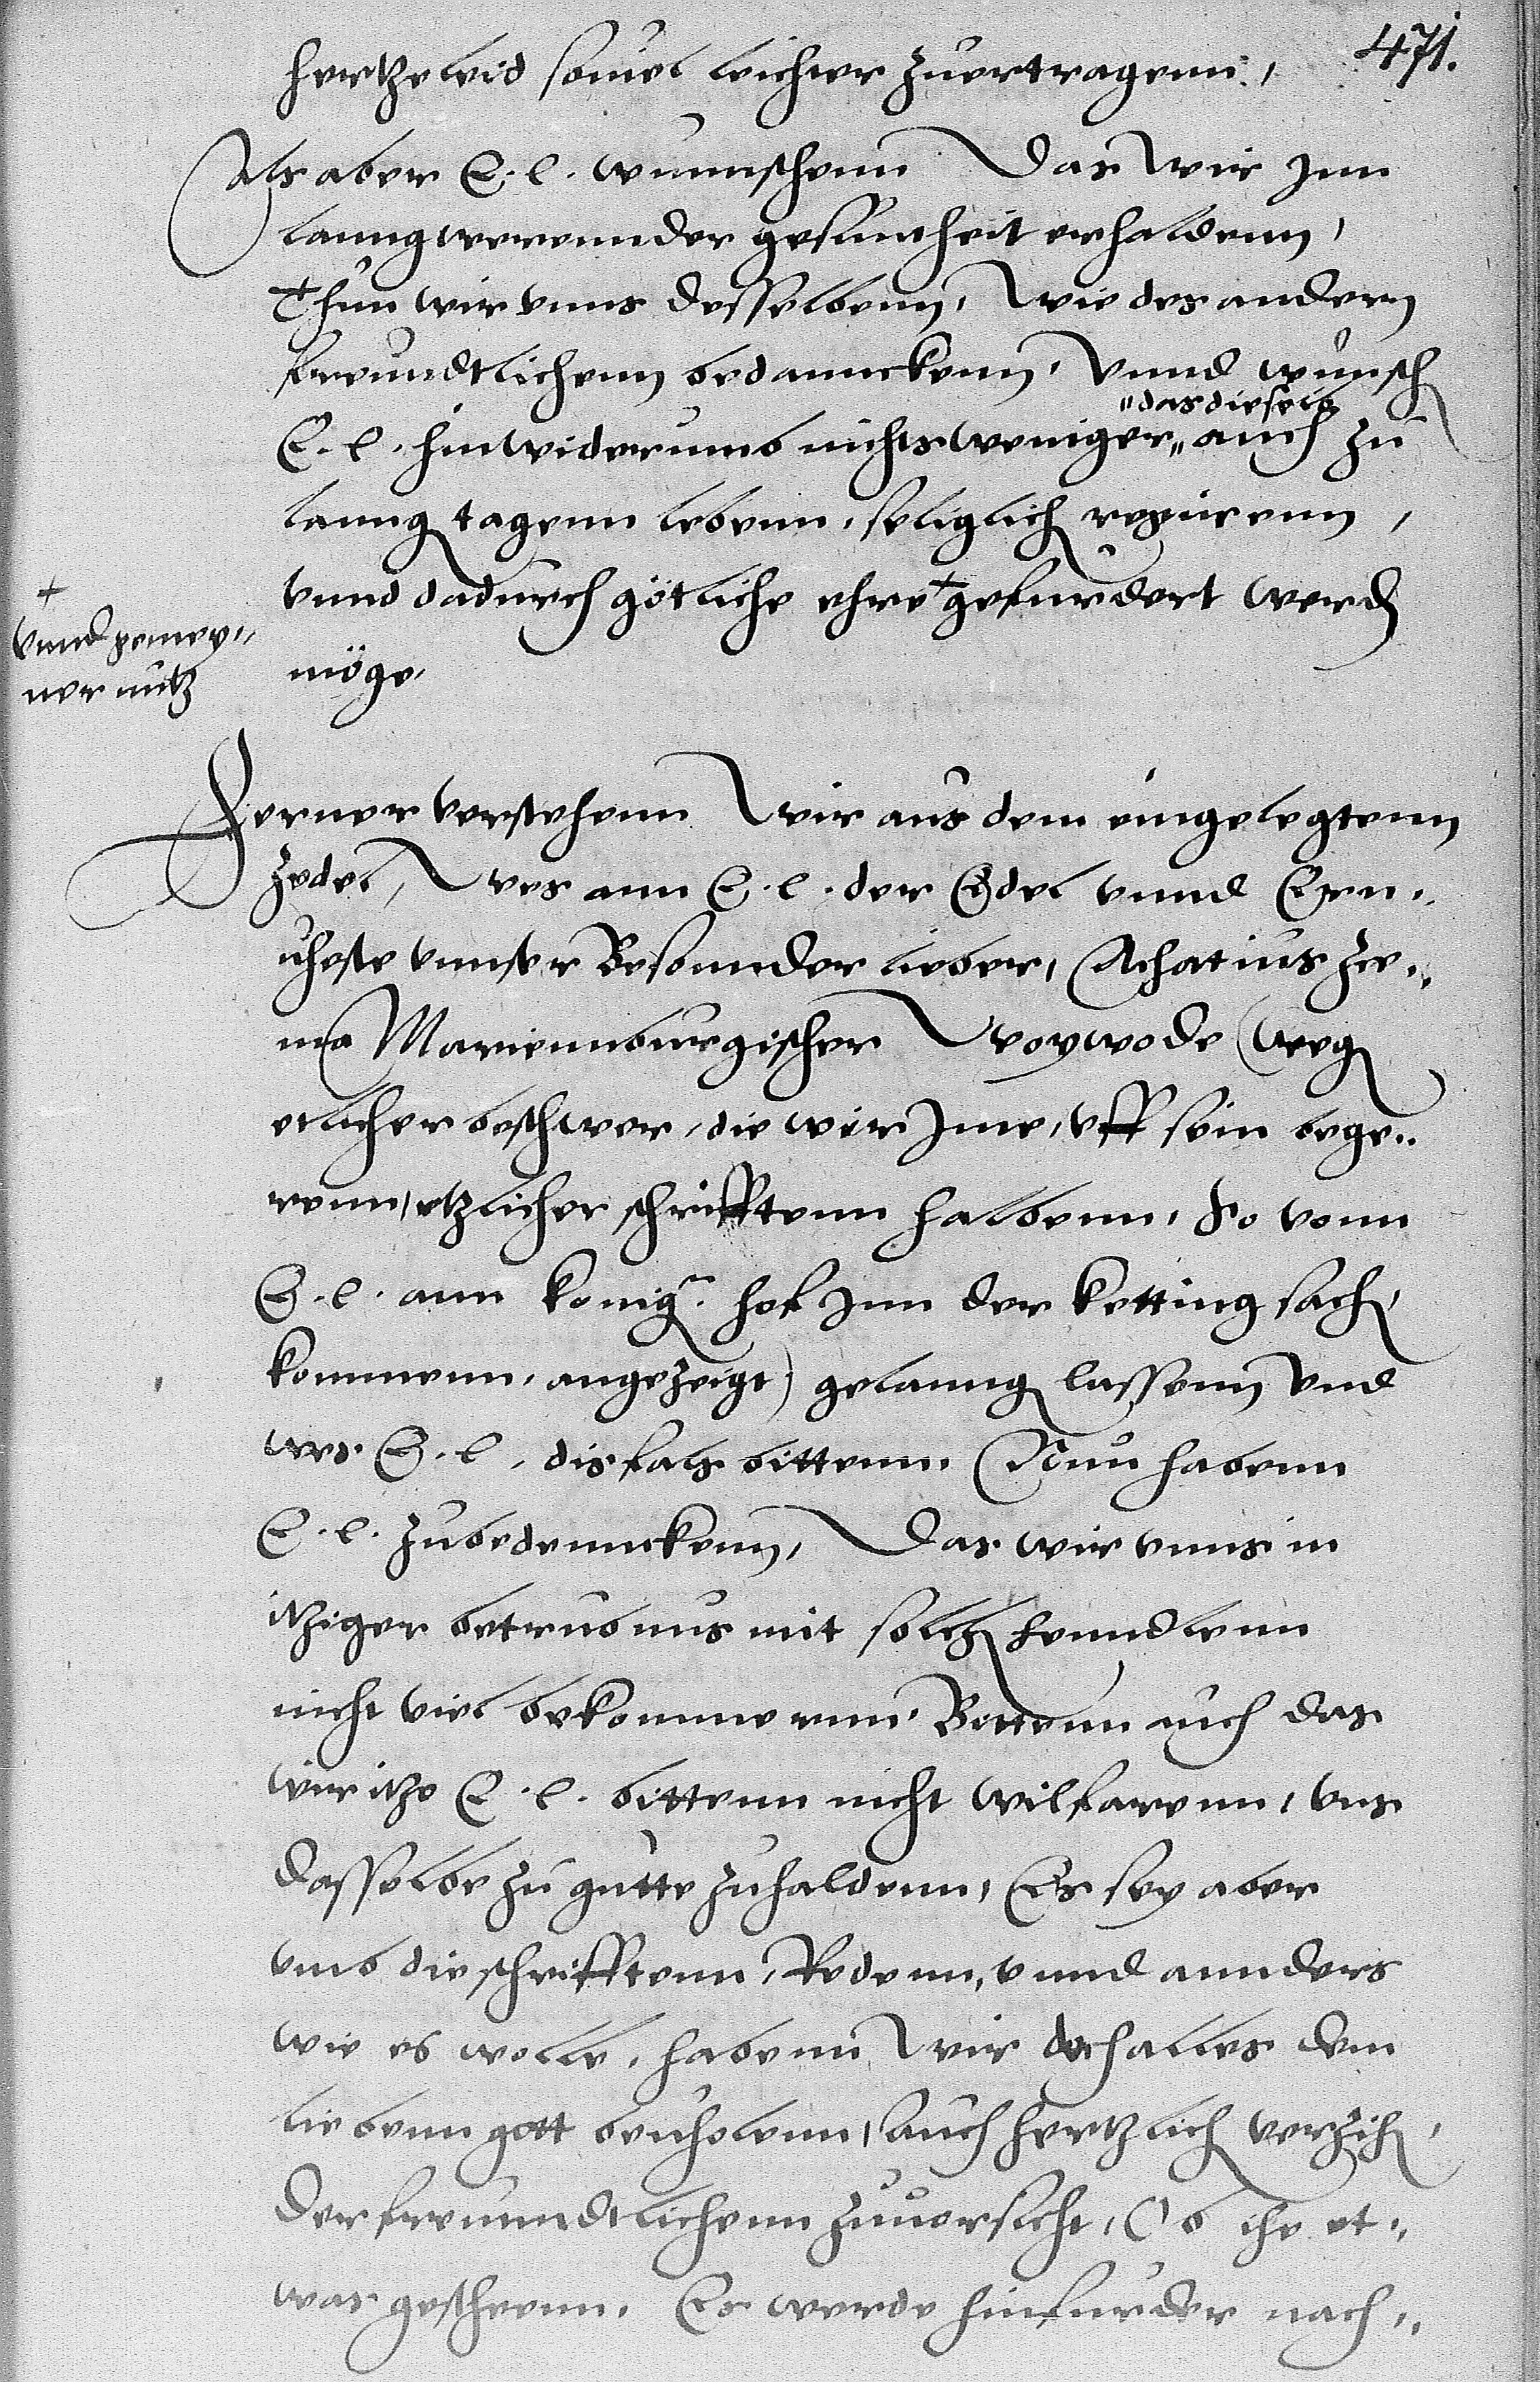 471.
hertzeleid souiel leichter zuertragenn,
Als aber E. l. wunnschenn Das wir Jnn
lanngwerennder gesuntheit erhaldenn,
Thun wir vnns desselbenn, wie des andern
freundtlichenn bedannckenn, Vnnd wunsch
"das dieselb
E. l. hinwiderumb nichts weniger" auch zu
lanng tagenn lebenn, seliglich regirenn,
vnnd dadurch götliche ehre + gefurdert werd
+
vnnd gemey"
ner nutz
möge,
Ferner verstehenn wir aus dem eingelegtenn
zedel, Wes ann E. l. der Edel vnnd Ern"
uheste vnnser Besonnder lieber, Achatius Ze"
ma Mariennburgischer Woywode (weg
etlicher beschwer, die wir Jme, vff sein bege"
renn, etzlicher schrifftenn halbenn, So vonn
E. l. ann konig. hof Jnn der ketting sach,
kommenn, angezeigt) gelanng lassenn Vnd
wes E. l. disfals bittenn. Nun habenn
E. l. zubedennckenn, Das wir vnns in
itziger betrubnus mit solch henndlenn
nicht viel bekommerenn, Bittenn auch das
wir itzo E. l. bittenn nicht wilfarenn, vns
dasselbe zu gutte zuhaldenn, Es sey aber
vmb die schrifftenn, Redenn, vnnd annders
wie es wolle, habenn wir doch alles dem
liebenn gott beuholenn, auch hertzlich verzih,
Der freunndtlichenn zuuorsicht, Ob ihe et"
was geschenn, Es werde hinfurder nach"